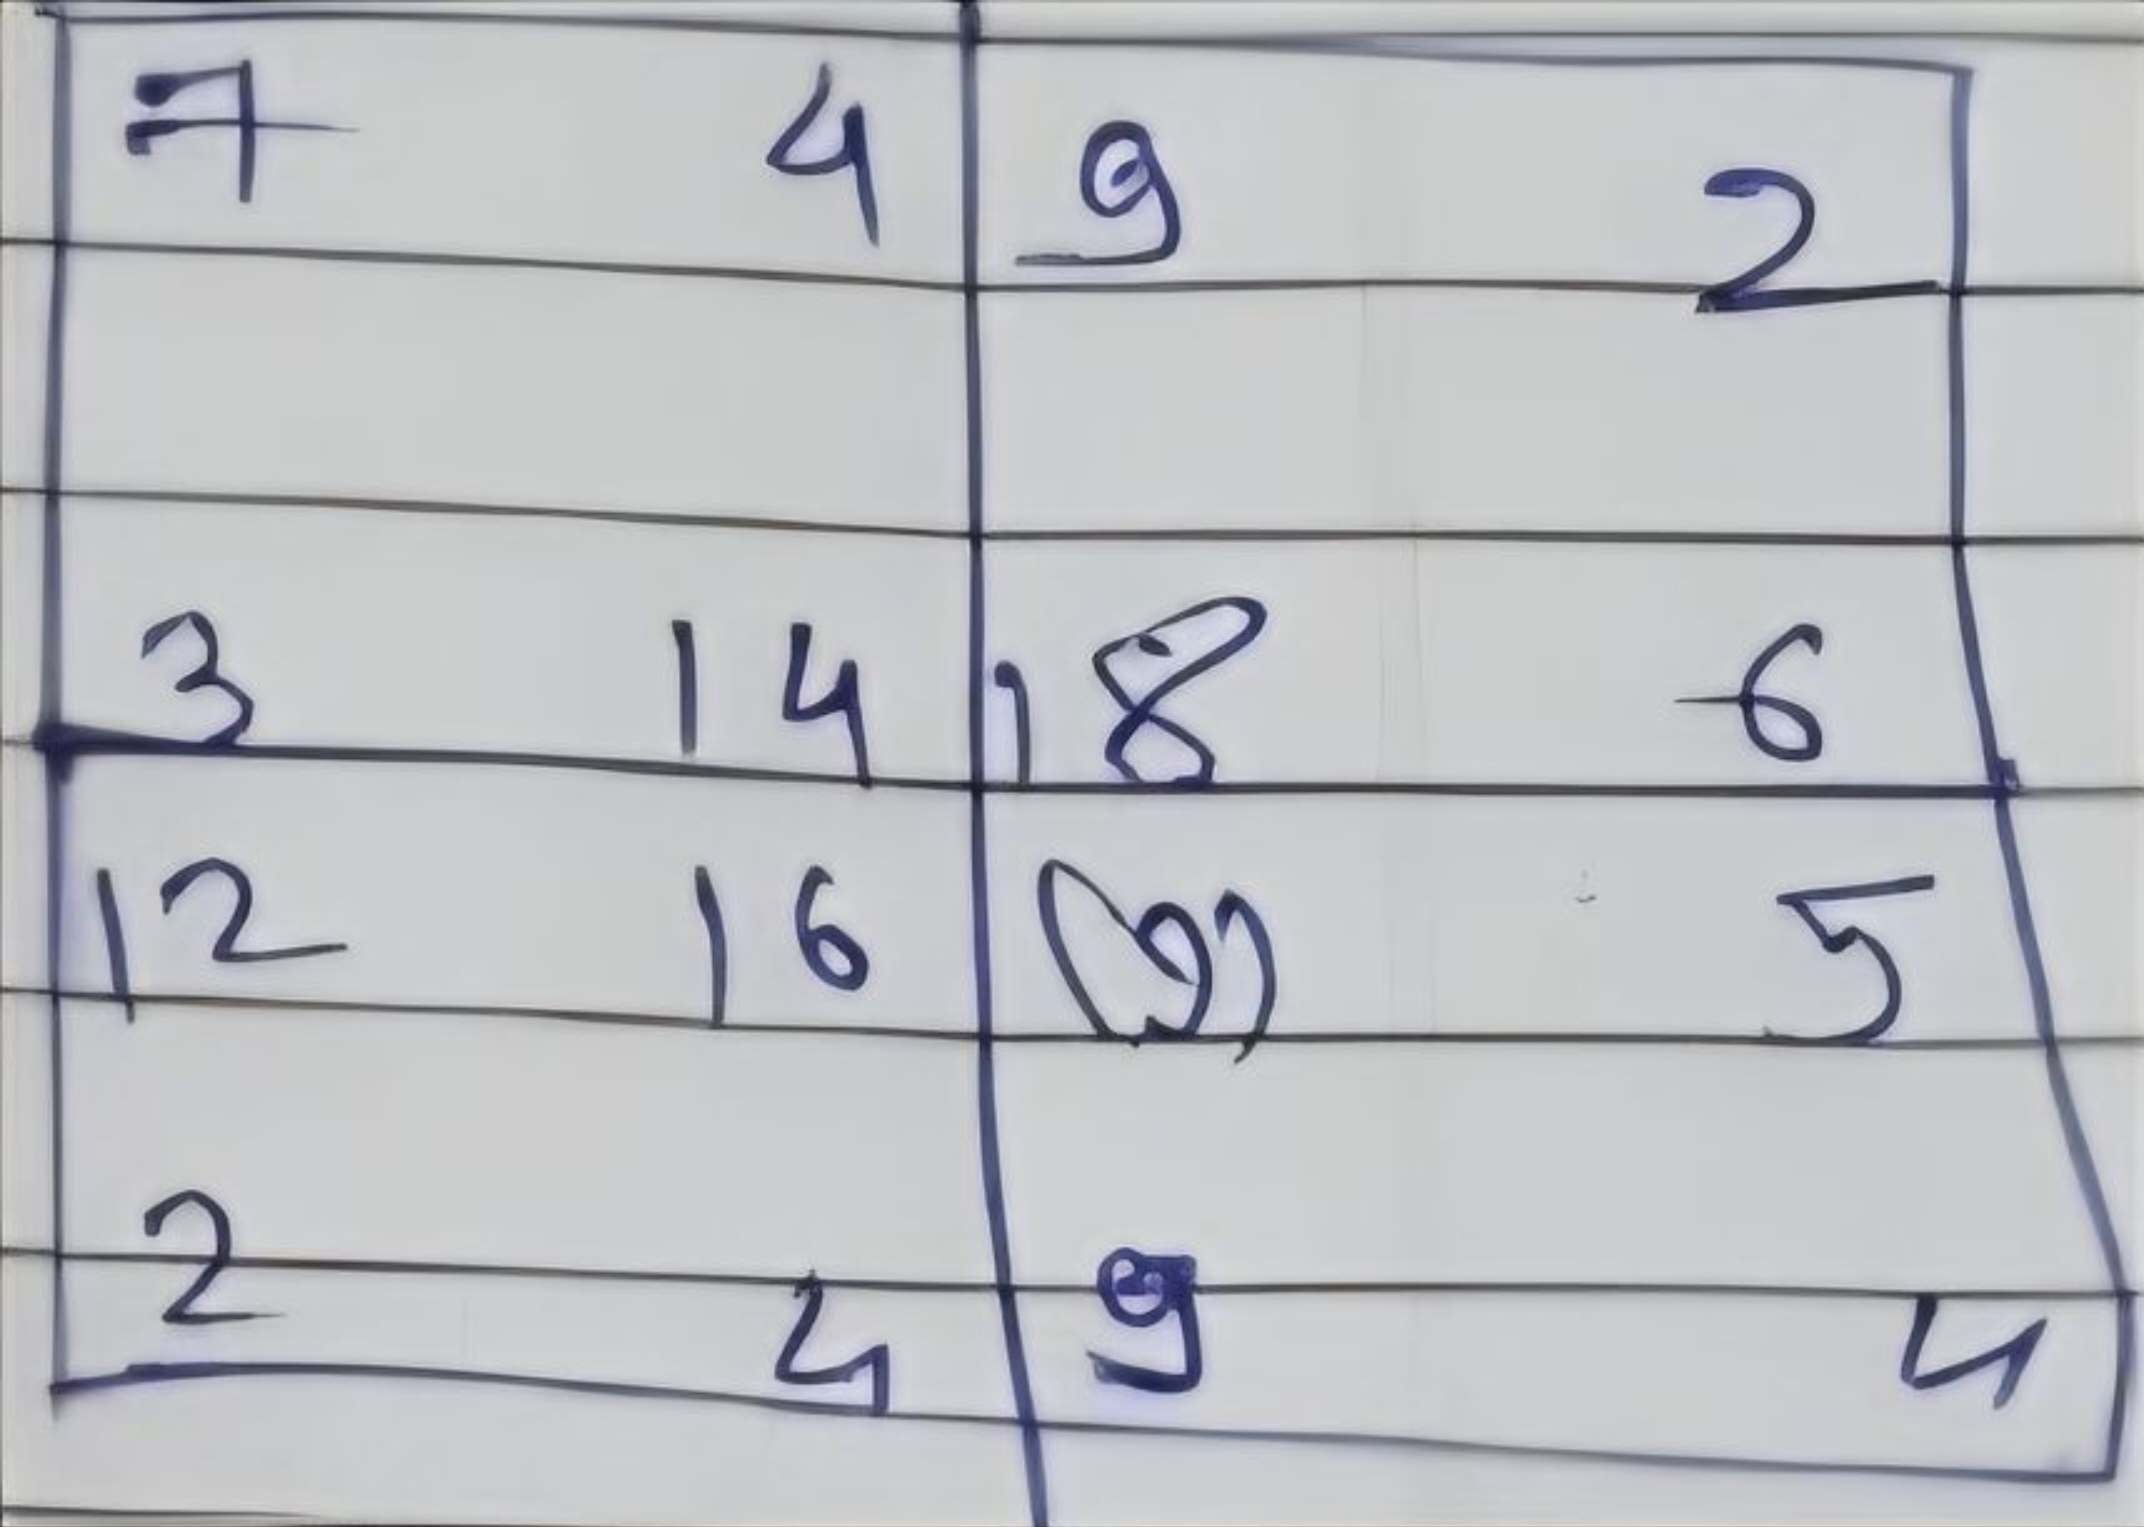 7 4 9 2
3 14 18 6
12 16 5
2 4 9 4